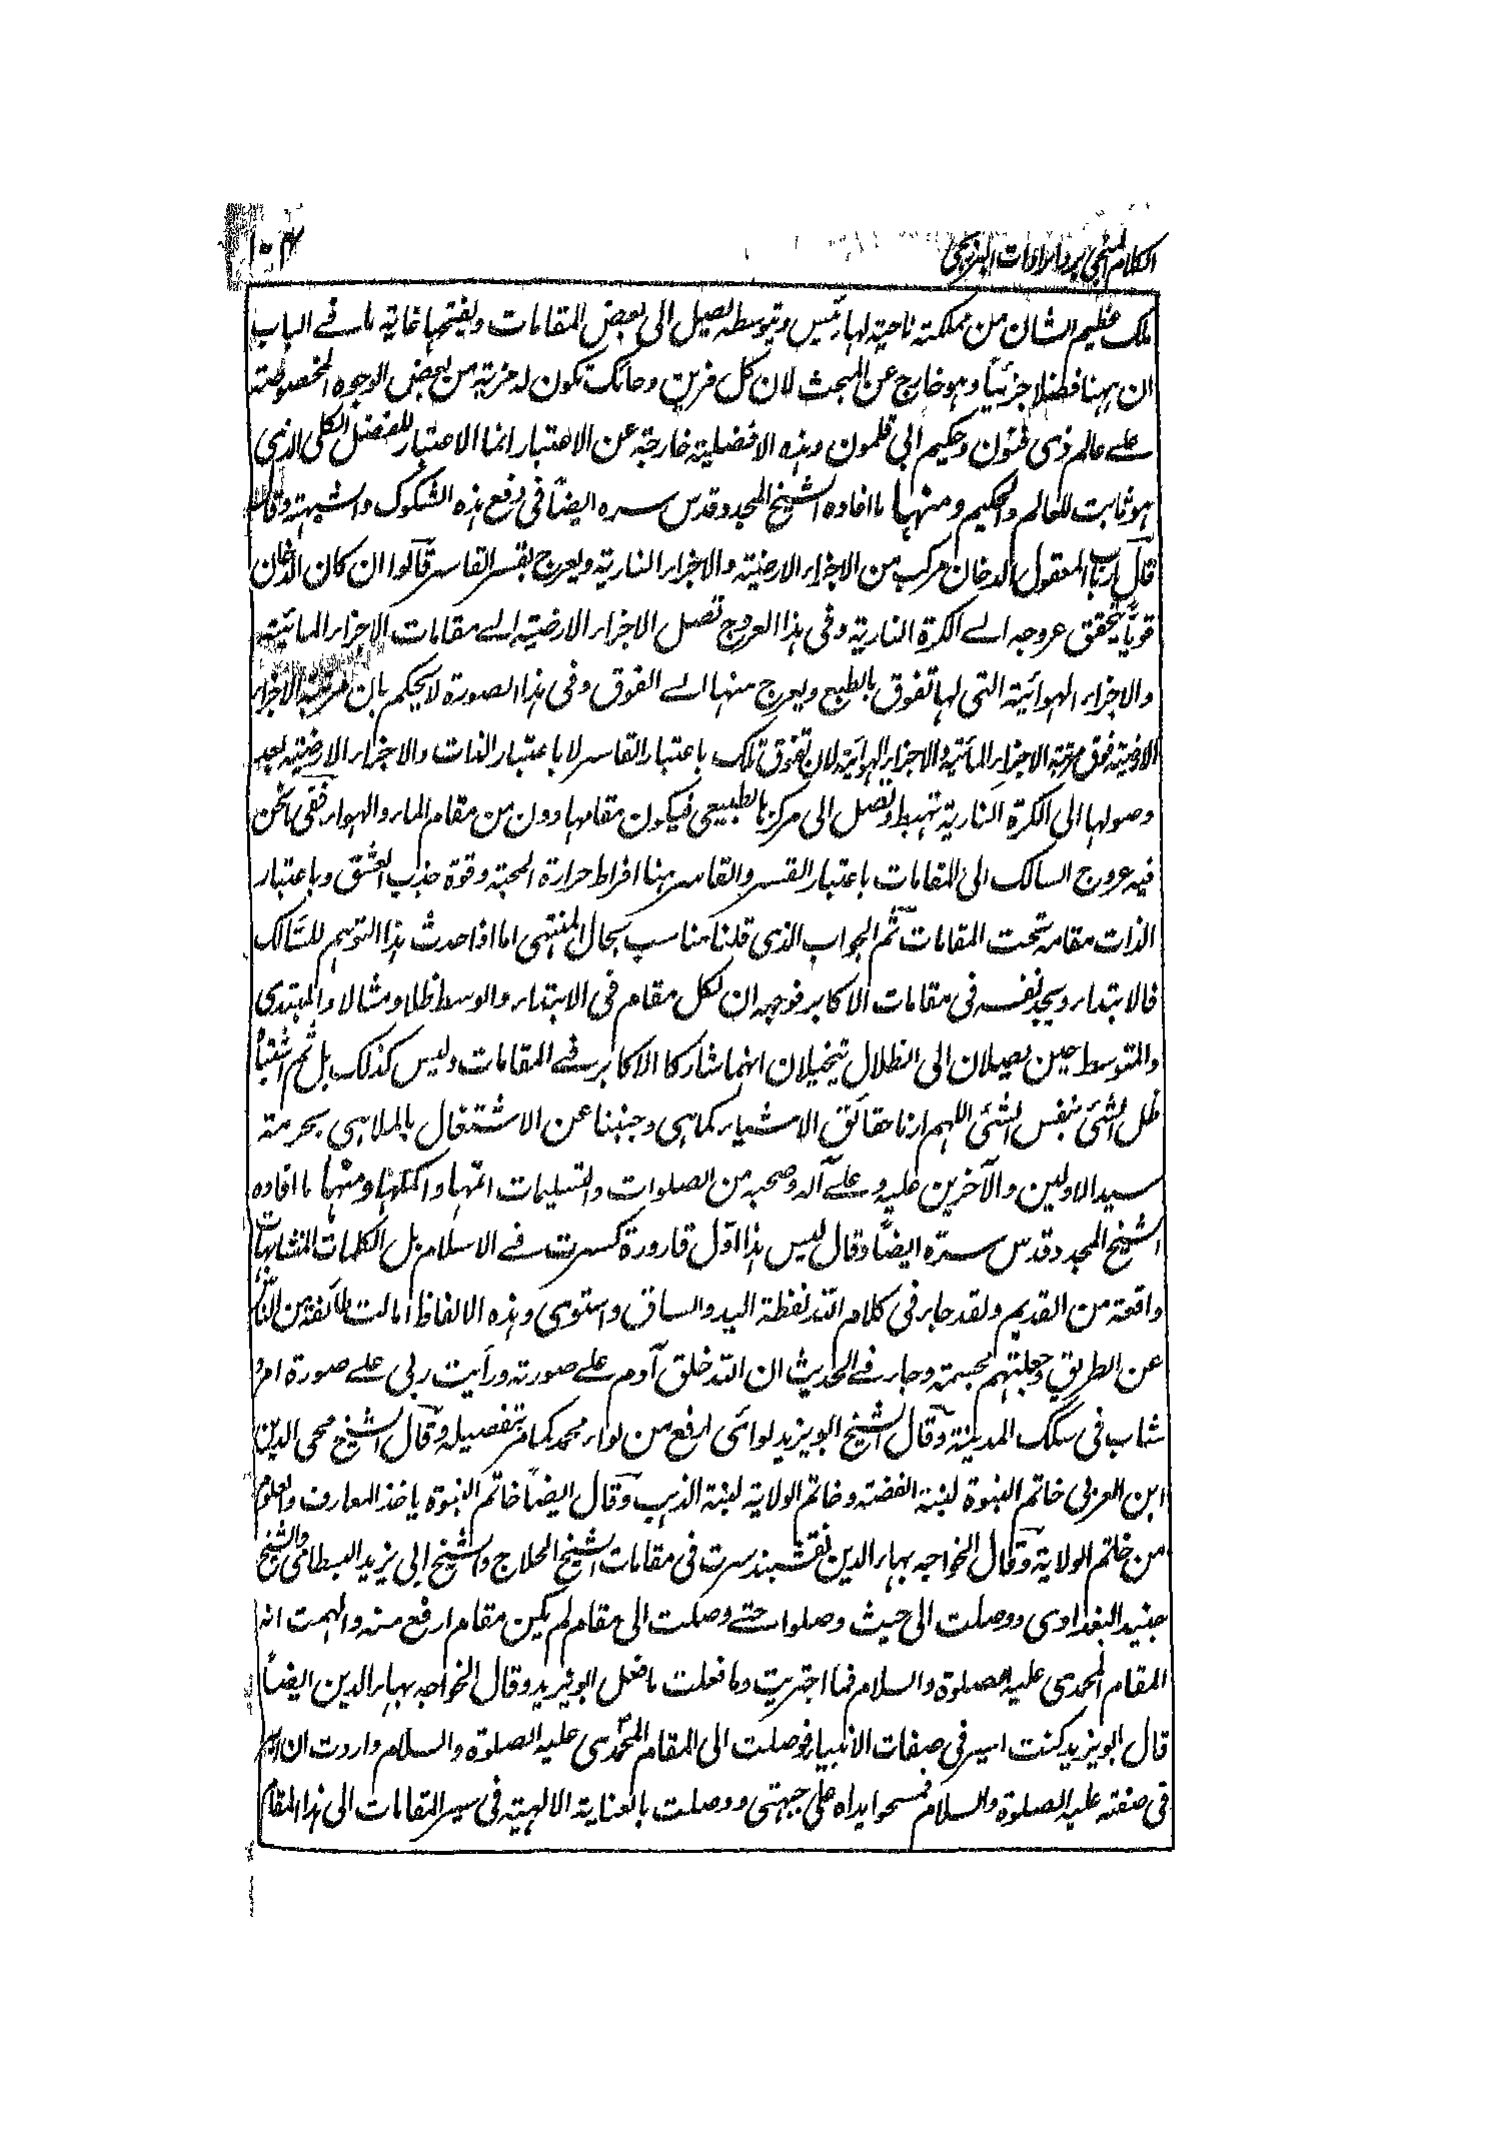 الكلام المنجي برد ايرادات البرزنجي
ملك عظيم الشان من مملكته ناحية لها رئيس وبتوسطه يصل الى بعض المقامات ويفتحها غاية ما في الباب
ان ههنا فضلا جزئيا وهو خارج عن المبحث لان كل فرين وحائك تكون له مزية من بعض الوجوه المخصوصة
على عالم ذى فنون وحكيم ابى قلمون وهذه الافضلية خارجة عن الاعتبار انما الاعتبار للفضل الكلى الذى
هو ثابت للعالم والحكيم ومنها ما افاده الشيخ المجدد قدس سره ايضاً فى دفع هذه الشكوك والشبهة وقال
قال ارباب المعقول الدخان مركب من الاجزاء الارضية والاجزاء النارية ويعرج بقسر القاسر قالوا ان كان الدخان
قوياً يتحقق عروجه الى الكرة النارية وفى هذا العروج تصل الاجزاء الارضية الى مقامات الاجزاء المائية
والاجزاء الهوائية التى لها تفوق بالطبع ويعرج منها الى الفوق وفى هذا الصورة لا يحكم بان مرتبة الاجزاء
الارضية فوق مرتبة الاجزاء المائية والاجزاء الهوائية لان تفوق تلك باعتبار القاسر لا باعتبار الذات والاجزاء الارضية بعد
وصولها الى الكرة النارية تهبط وتصل الى مركزها الطبيعى فيكون مقامها دون من مقام الماء والهواء ففى ما نحن
فيه عروج السالك الى المقامات باعتبار القسر والقاسر هنا افراط حرارة المحبة وقوة جذب العشق وباعتبار
الذات مقامه تحت المقامات ثم الجواب الذى قلنا مناسب بحال المنتهى اما اذا حدث هذا التوهم للسالك
فالابتداء ويجد نفسه فى مقامات الاكابر فوجهه ان لكل مقام فى الابتداء والوسط ظلا ومثالا والمبتدى
والمتوسط حين يصلان الى الظلال يتخيلان انهما شاركا الاكابر فى المقامات وليس كذلك بل ثم اشتباه
ظل الشئ بنفس الشئ اللهم ارنا حقائق الاشياء كما هى وجنبنا عن الاشتغال بالملاهى بحرمة
سيد الاولين والآخرين عليه وعلى آله وصحبه من الصلوات والتسليمات اتمها واكملها ومنها ما افاده
الشيخ المجدد قدس سره ايضاً وقال ليس هذا اوّل قارورة كسرت فى الاسلام بل الكلمات المتشابهات
واقعة من القديم ولقد جاء فى كلام الله لفظة اليد والساق واستوى وهذه الالفاظ امالت طائفة من الناس
عن الطريق وجعلتهم مجسمة وجاء فى الحديث ان الله خلق آدم على صورته ورأيت ربى على صورة امرد
شاب فى سكك المدينة وقال الشيخ ابو يزيد لوائى ارفع من لواء محمد كما مر تفصيله وقال الشيخ محى الدين
ابن العربى خاتم النبوة لبنة الفضة وخاتم الولاية لبنة الذهب وقال ايضاً خاتم النبوة ياخذ المعارف والعلوم
من خاتم الولاية وقال الخواجه بهاء الدين نقشبند سرت فى مقامات الشيخ الحلاج والشيخ ابى يزيد البسطامى والشيخ
جنيد البغدادى ووصلت الى حيث وصلوا حتى وصلت الى مقام لم يكن مقام ارفع منه والهمت انه
المقام المحمدى عليه الصلوة والسلام فما اجتريت وما فعلت ما فعل ابو يزيد وقال الخواجه بهاء الدين ايضاً
قال ابو يزيد كنت اسير فى صفات الانبياء فوصلت الى المقام المحمدى عليه الصلوة والسلام واردت ان اسير
فى صفته عليه الصلوة والسلام فمسحوا يداه على جبهتى ووصلت بالعناية الالهية فى سير المقامات الى هذا المقام